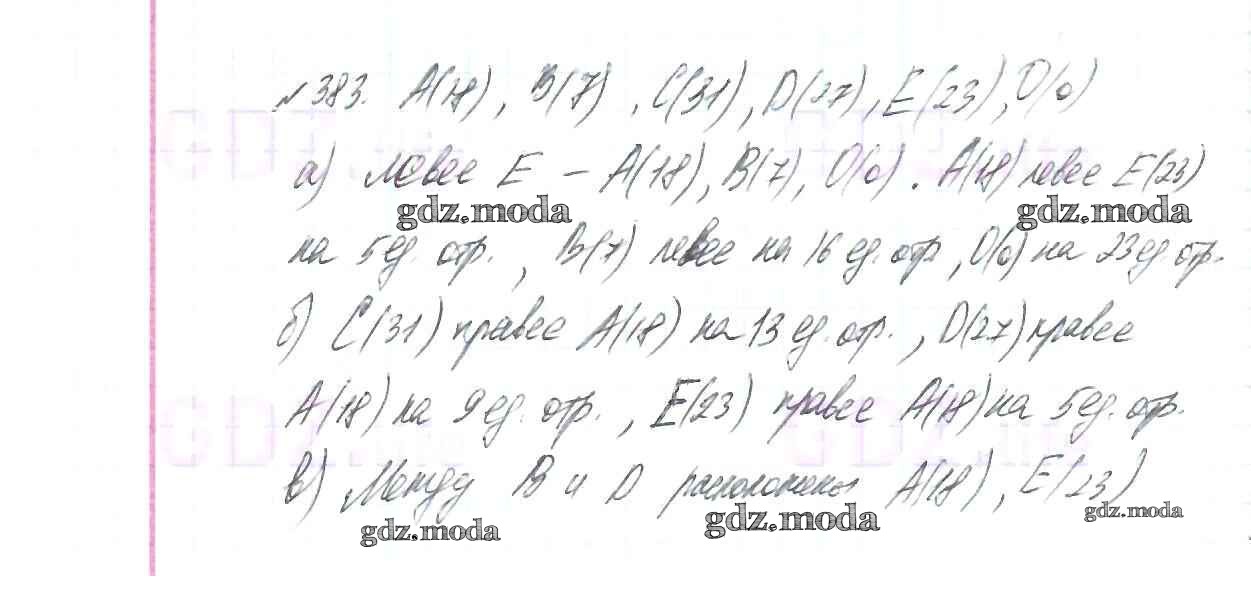 №383. A(18), B(7), C(31), D(27), E(23), O(0)
а) левее E – A(18), B(7), O(0). A(18) левее E(23)
gdz.moda gdz.moda
на 5 ед. отр., B(7) левее на 16 ед. отр, O(0) на 23 ед. отр.
б) C(31) правее A(18) на 13 ед. отр., D(27) правее
A(18) на 9 ед. отр., E(23) правее A(18) на 5 ед. отр.
в) Между B и D расположены A(18), E(23)
gdz.moda gdz.moda gdz.moda